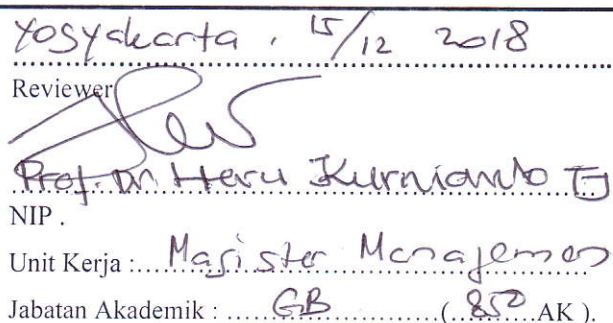 Yogyakarta, 15/12 2018
Reviewer
Prof. Dr. Heru Kurnianto Tj
NIP .
Unit Kerja : Magister Manajemen
Jabatan Akademik : GB (850 AK ).